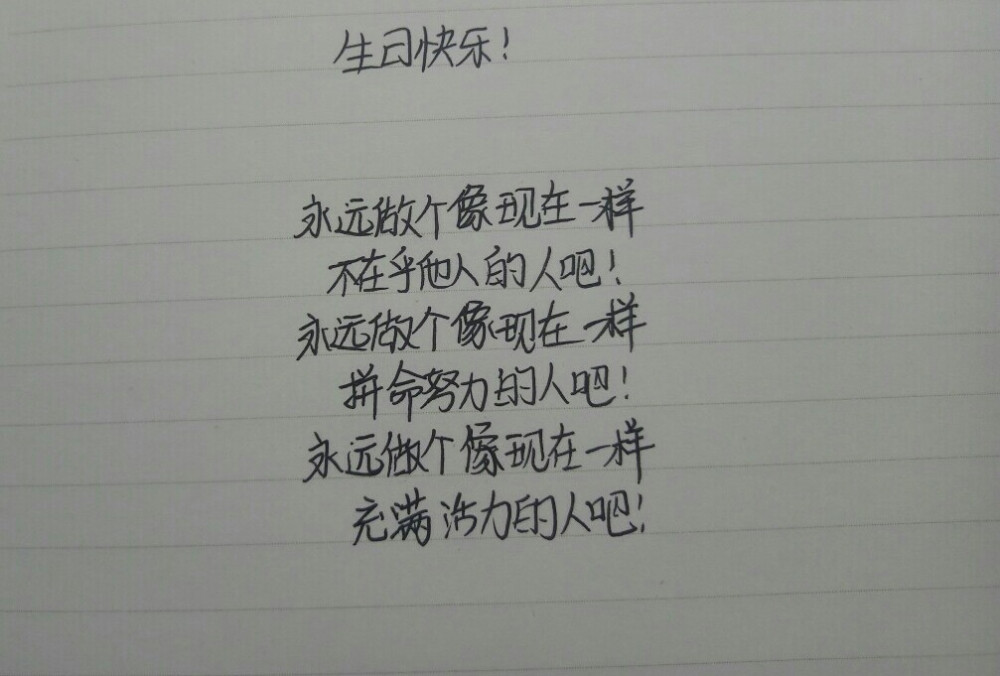 生日快乐!
永远做个像现在一样
不在乎他人的人吧!
永远做个像现在一样
拼命努力的人吧!
永远做个像现在一样
充满活力的人吧!